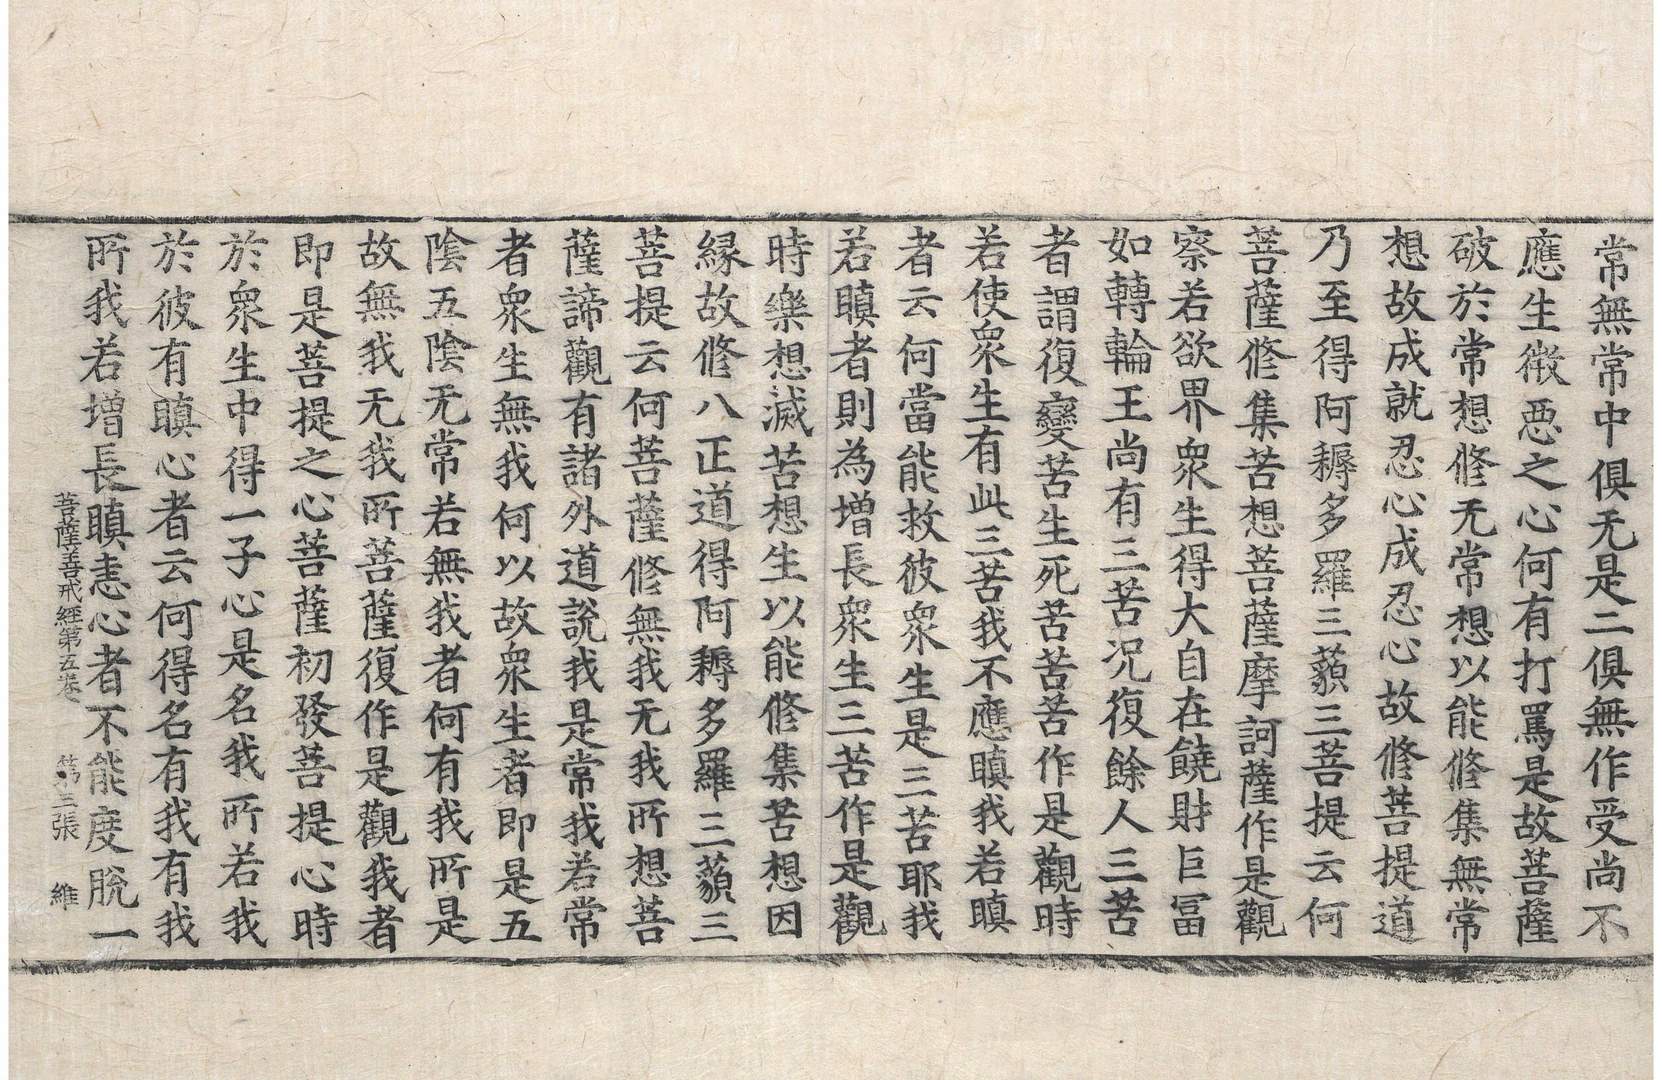 常無常中俱无是二俱無作受尚不
應生微惡之心何有打罵是故菩薩
破於常想修无常想以能修集無常
想故成就忍心成忍心故修菩提道
乃至得阿耨多羅三藐三菩提云何
菩薩修集苦想菩薩摩訶薩作是觀
察若欲界眾生得大自在饒財巨冨
如轉輪王尚有三苦况復餘人三苦
者謂復變苦生死苦苦苦作是觀時
若使眾生有此三苦我不應瞋我若瞋
者云何當能救彼眾生是三苦耶我
若瞋者則為增長眾生三苦作是觀
時樂想滅苦想生以能修集苦想因
縁故修八正道得阿耨多羅三藐三
菩提云何菩薩修無我无我所想菩
薩諦觀有諸外道說我是常我若常
者眾生無我何以故眾生者即是五
陰五陰无常若無我者何有我所是
故無我无我所菩薩復作是觀我者
即是菩提之心菩薩初發菩提心時
於眾生中得一子心是名我所若我
於彼有瞋心者云何得名有我有我
所我若增長瞋恚心者不能度脫一
菩薩善戒經第五卷 第三張 維